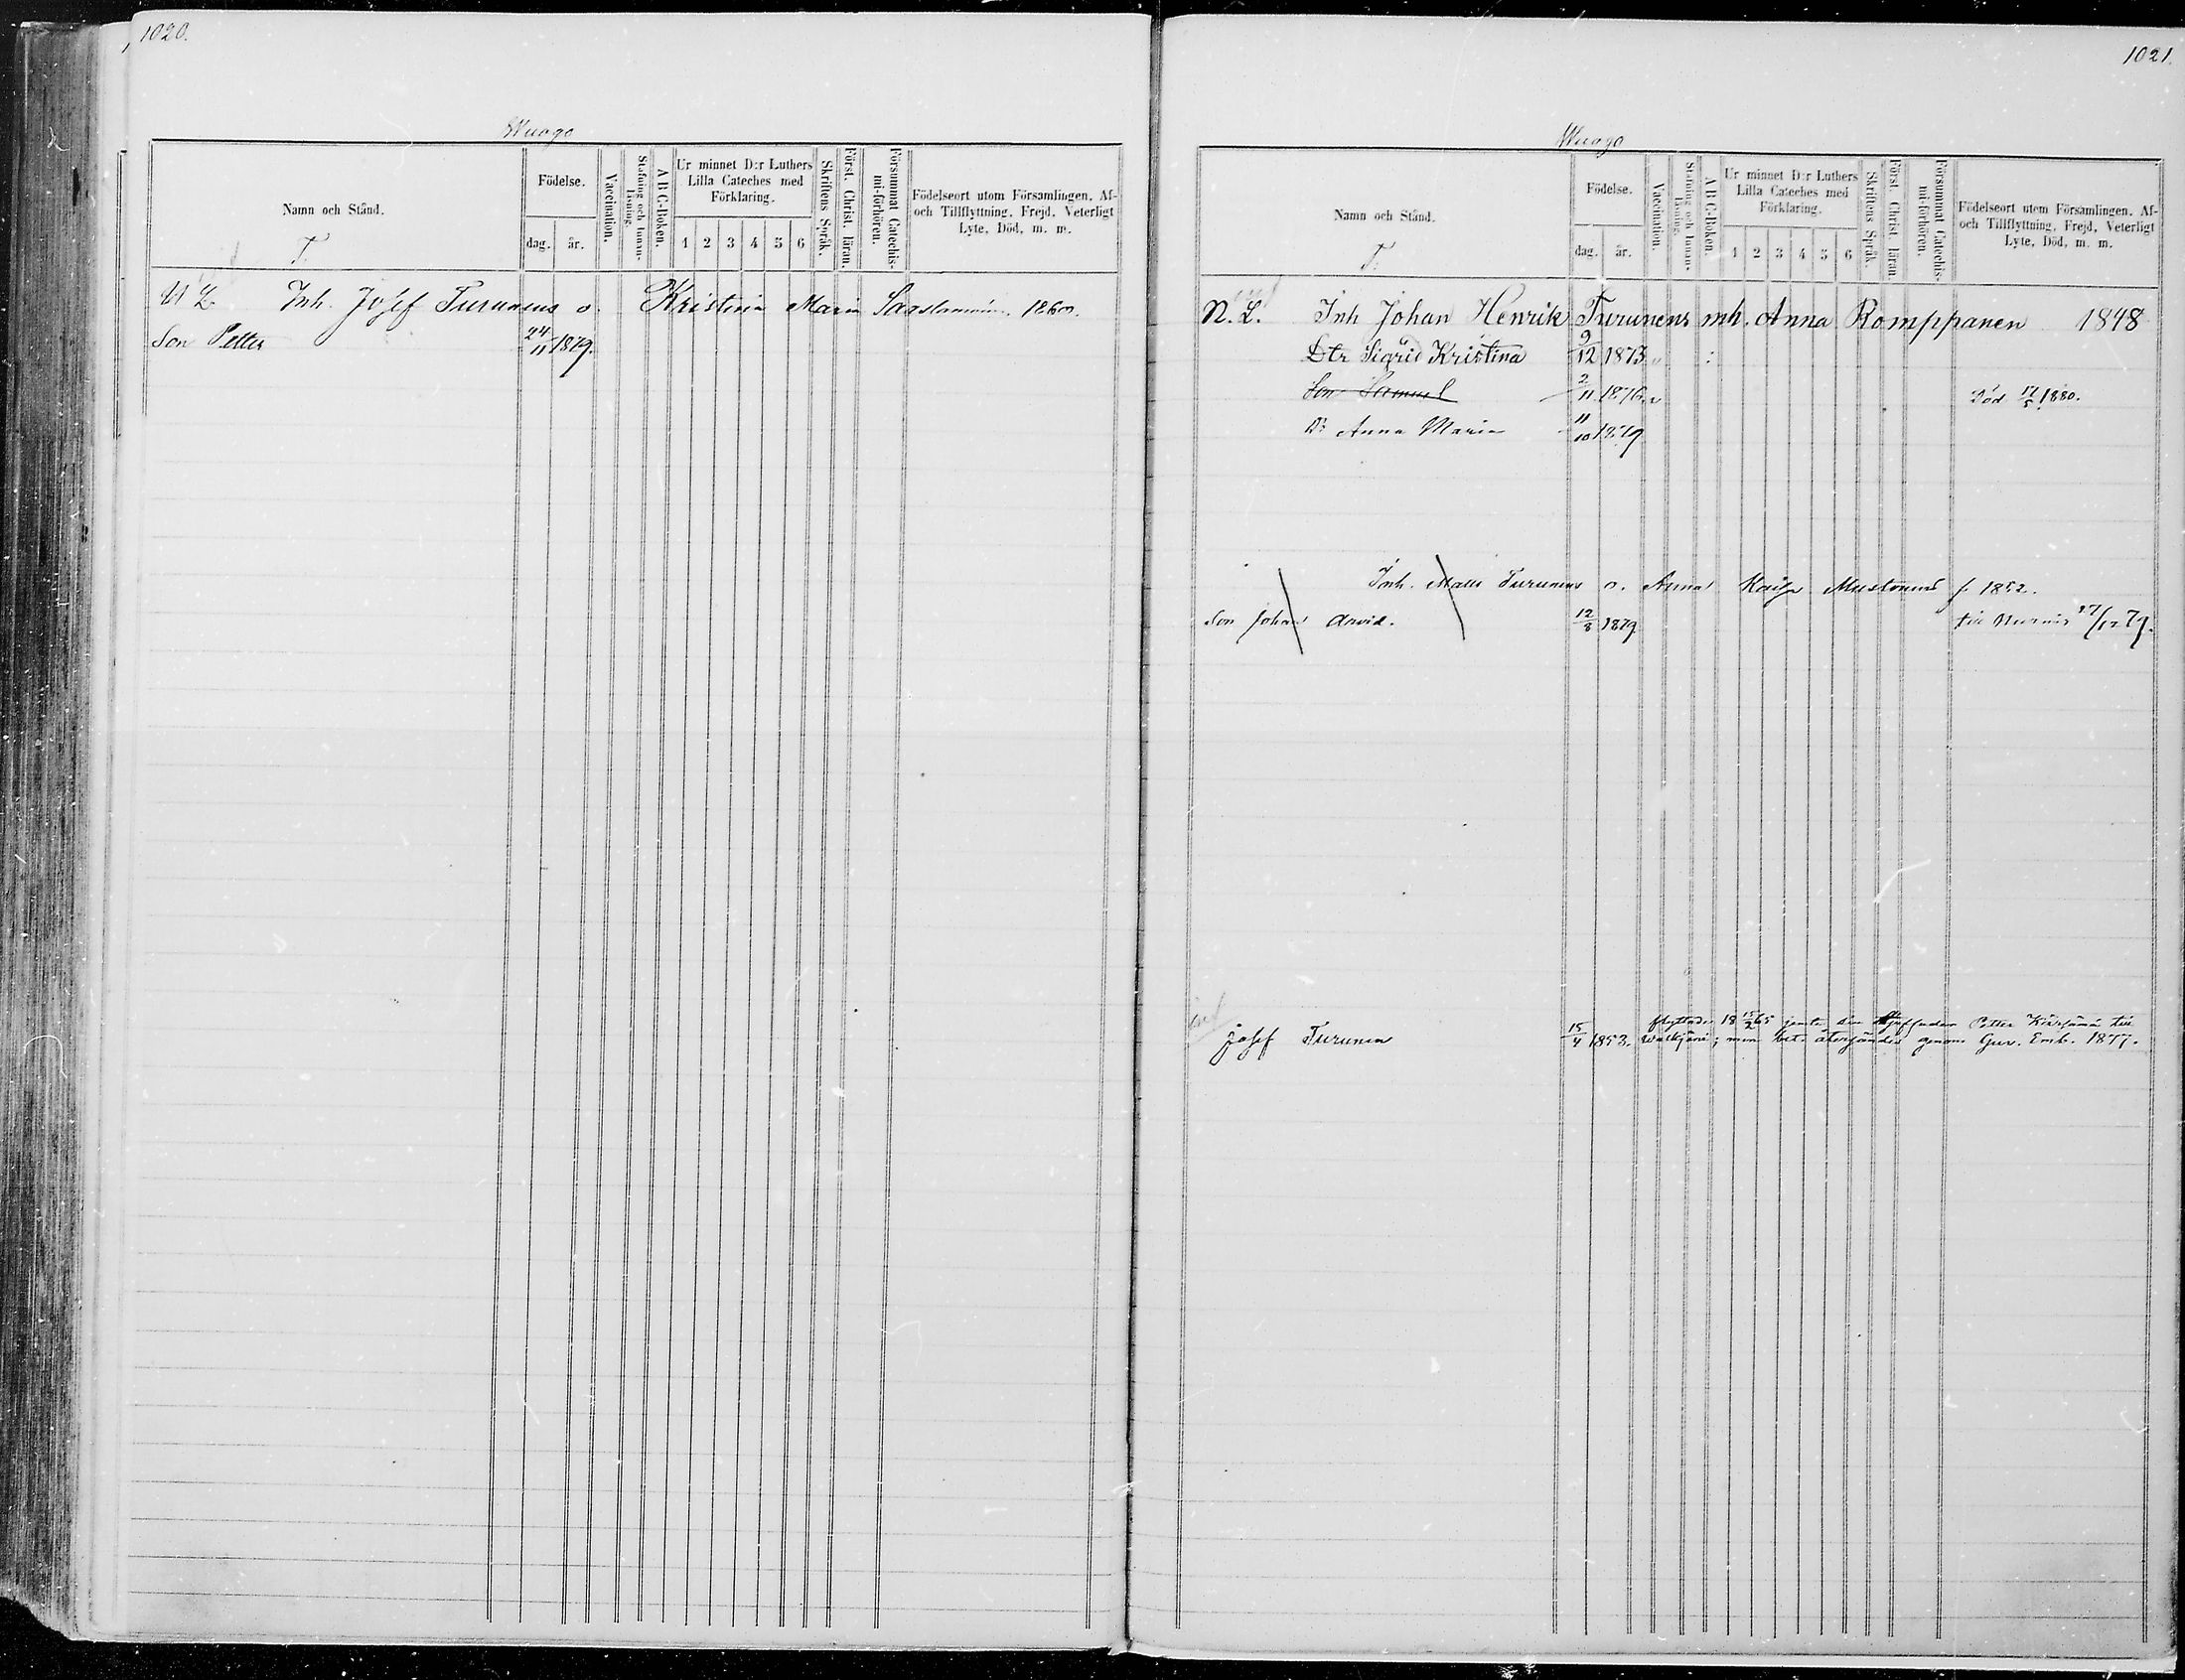 1020.
Wuogo
Namn och Stånd.
T.
Födelse.
dag.
år.
Vaccination.
Stafning och Innan-
läsning.
A B C-Boken.
Ur minnet D:r Luthers
Lilla Cateches med
Förklaring.
1 2 3 4 5 6
Skriftens Språk.
Först. Christ. läran.
Försummat Catechis-
mi-förhören.
Födelseort utom Församlingen, Af-
och Tillflyttning, Frejd, Veterligt
Lyte, Död, m. m.
N L Inh. Josef Turunens o. Kristina Maria 1860.
Son Petter 24/11 1879.
1021.
Wuogo
Namn och Stånd.
T.
Födelse.
dag.
år.
Vaccination.
Stafning och Innan-
läsning.
A B C-Boken.
Ur minnet D:r Luthers
Lilla Cateches med
Förklaring.
1 2 3 4 5 6
Skriftens Språk.
Först. Christ. läran.
Försummat Catechis-
mi-förhören.
Födelseort utom Församlingen, Af-
och Tillflyttning, Frejd, Veterligt
Lyte, Död, m. m.
N. L. Inh Johan Henrik Turunens mh. Anna Romppanen 1848
Dtr Sigrid Kristina 9/12 1873
Son Samuel 2/11 1876 Död 17/5 1880.
D: Anna Maria 11/10 1879
Inh. Matts Turunens o. Anna Kaisa Mustonens f. 1852.
Son Johan Arvid. 12/8 1879 till Nurmis 27/12 79.
flyttade 18 15/2 65 jemte sin Styffader Petter till
Josef Turunen 15/4 1853. Walkjärvi; men bet. återsändes genom Guv. Emb. 1877.